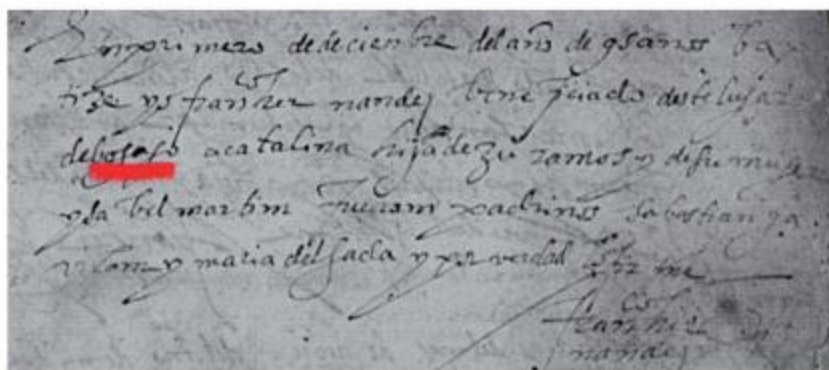 En primero de deciembre del año de 95 años ba
tize yo fran.co her nandez beneficiado deste lugar
de a catalina hija de ramos y de su muger
ysabel martim fueron padrinos sabastian
y maria delgada y por verdad firme
fran.co her
nandez